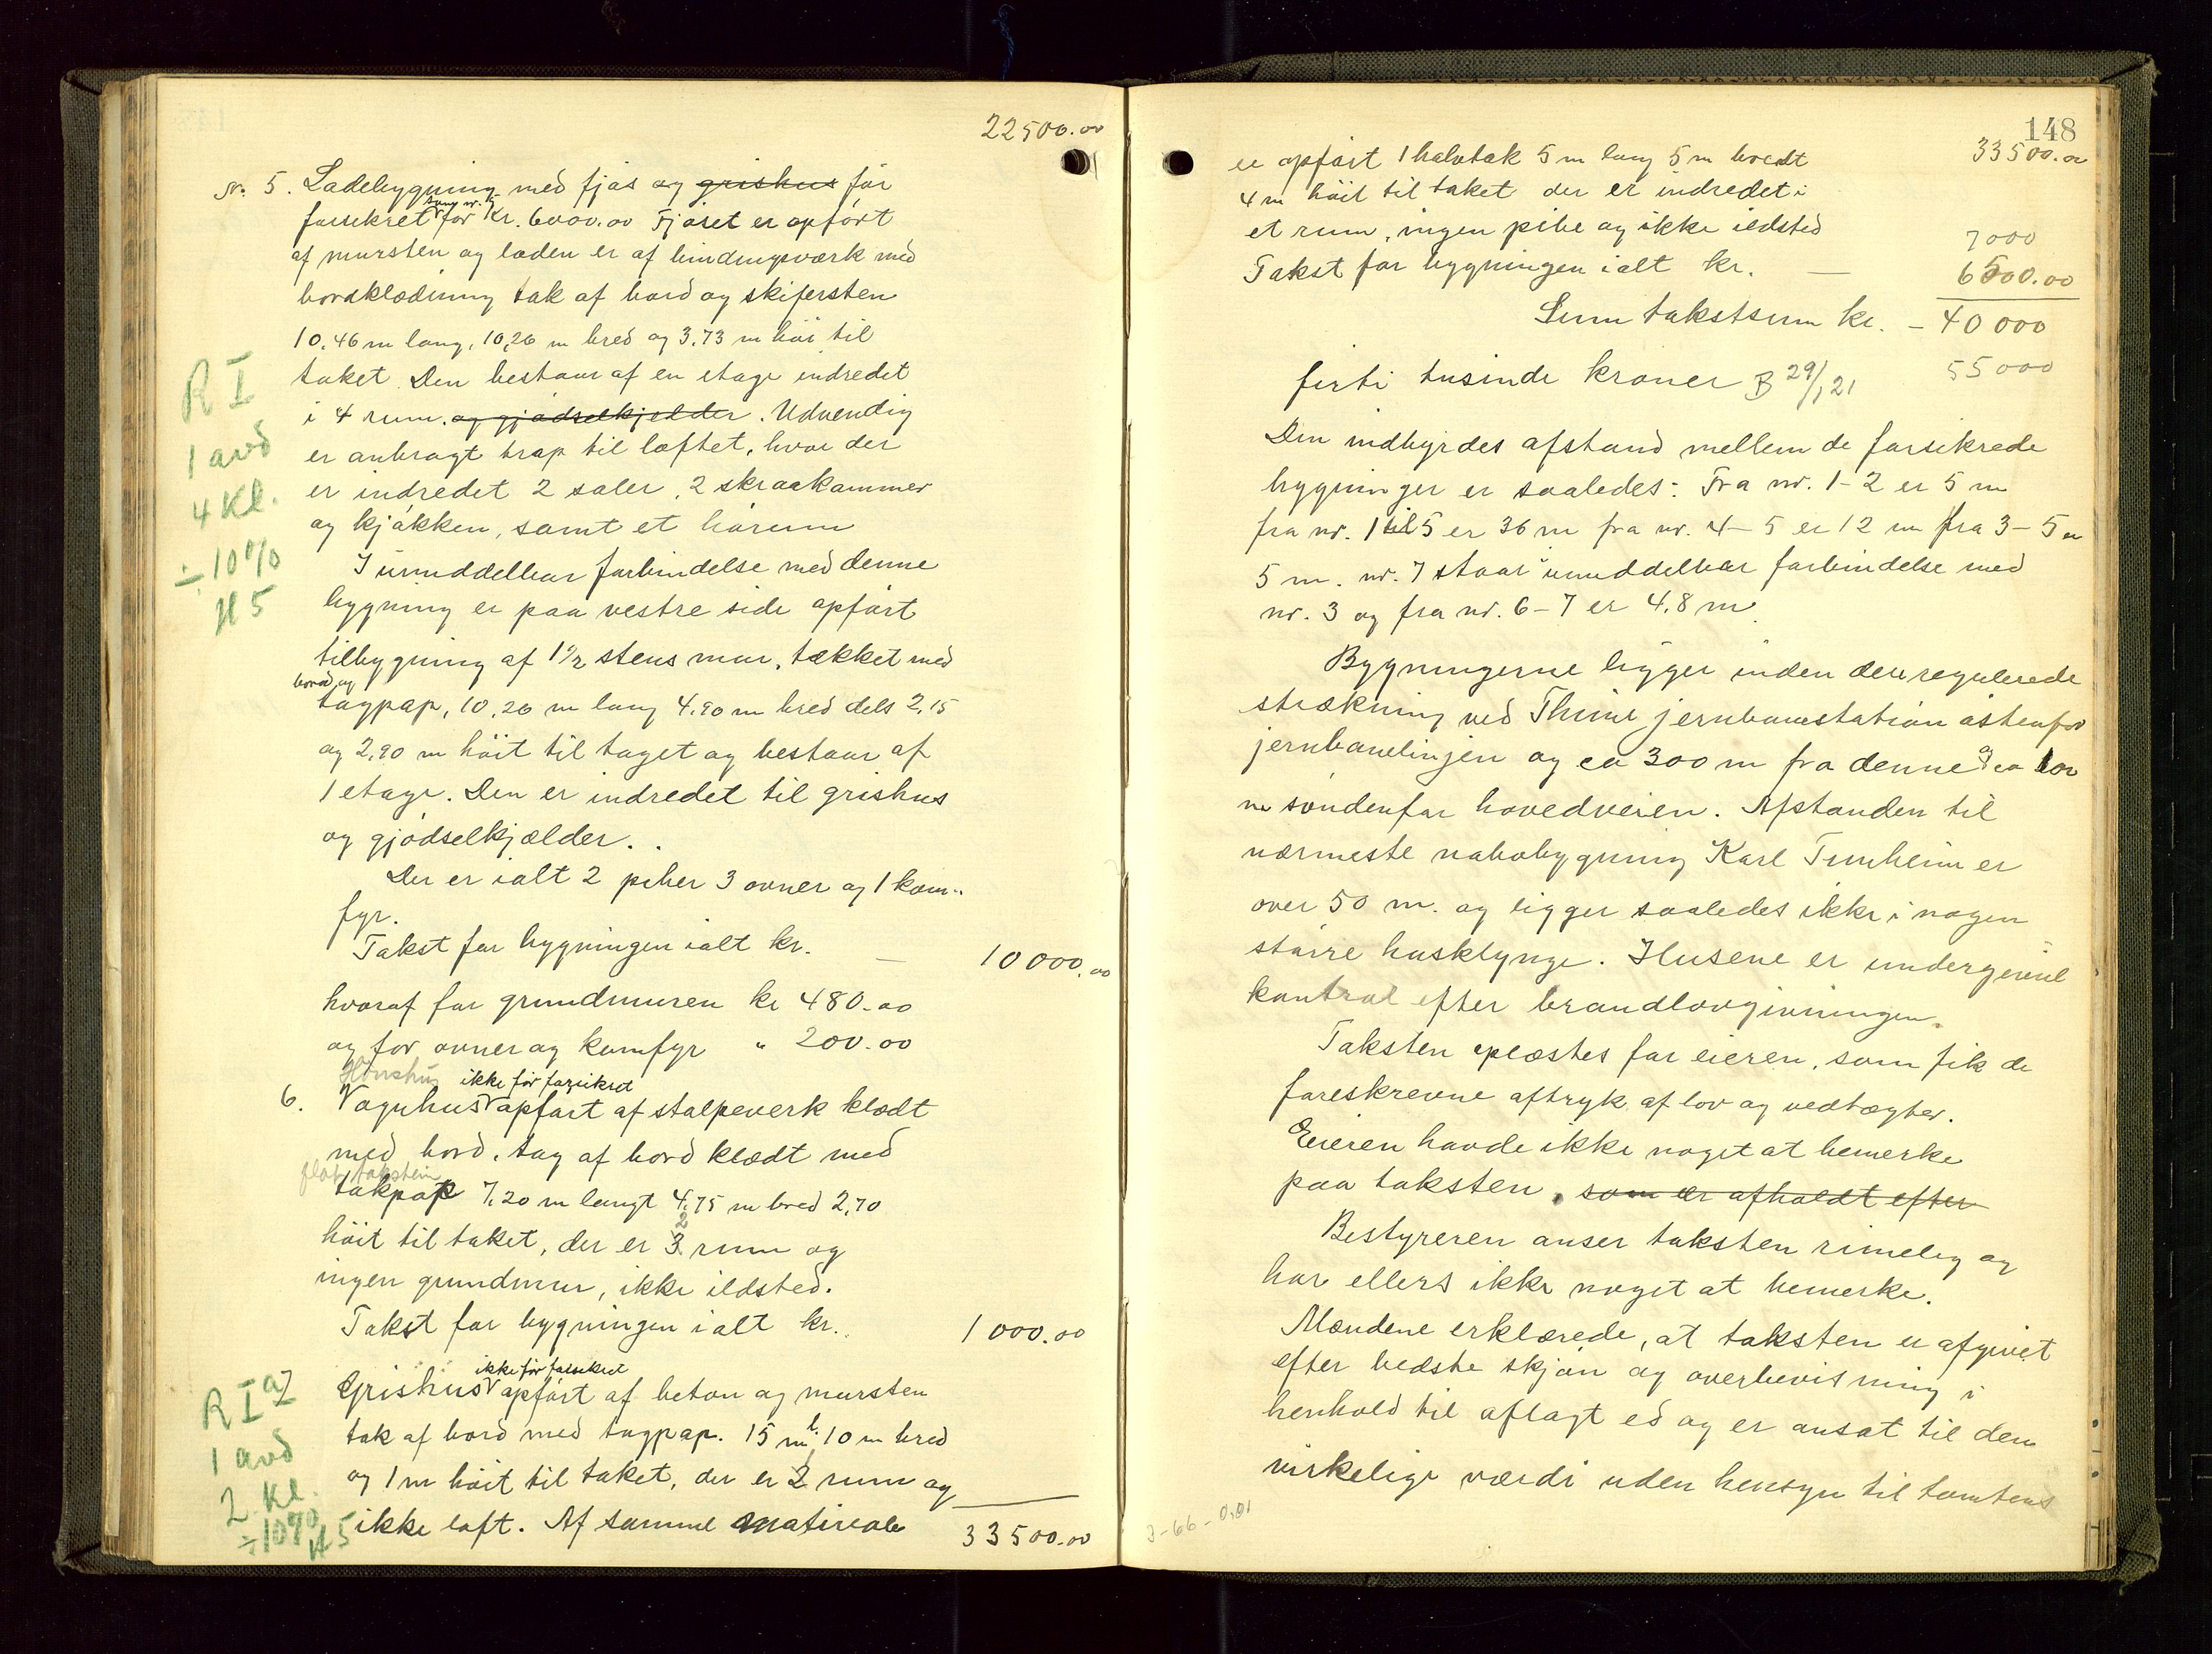 22500.00
Nr. 5. Ladebygning med fjøs og grishus før
forsikret som nr. 5 for Kr. 6000.00 Fjøset er opført
af mursten og laden er af bindingsværk med
bordklædning tak af bord og skifersten
10.46 m lang, 10,26 m bred og 3.73 m høi til
taket. Den bestaar af en etage indredet
i 4 rum. og gjødselkjelder. Udvendig
er anbragt trap til loftet, hvor der
er indredet 2 saler, 2 skraakammer
og kjøkken, samt et hørum
I umiddelbar forbindelse med denne
bygning er paa vestre side opført
tilbygning af 1 1/2 stens mur, tækket med
bord og
tagpap, 10,26 m lang 4.90 m bred dels 2.15
og 2,90 m høit til taget og bestaar af
1 etage. Den er indredet til grishus
og gjødselkjælder.
Der er ialt 2 piber 3 ovner og 1 kom-
fyr.
Takst for bygningen ialt kr. — 10000.00
hvoraf for grundmuren kr 480.00
og for ovner og komfyr " 200.00
Hønshus ikke før forsikret
6. Vognhus opført af stolpeverk klædt
med bord, tag af bord klædt med
flat takstein
takpap 7,20 m langt 4,75 m bred 2,70
2
høit til taket, der er 3 rum og
ingen grundmur, ikke ildsted.
Takst for bygningen ialt kr. 1000.00
ikke før forsikret
Grishus opført af beton og mursten
tak af bord med tagpap. 15 m l. 10 m bred
og 1 m høit til taket, der er 2 rum og
ikke loft. Af samme materiale 33500.00
R I
1 avd
4 Kl.
÷ 10%
H 5
R I a2
1 avd
2 Kl.
÷ 10%
H 5
148
33500.00
er opført 1 halvtak 5 m lang 5 m bredt
4 m høit til taket der er indredet i
et rum, ingen pibe og ikke ildsted
7000
Takst for bygningen ialt kr. — 6500.00
Sum takstsum kr. – 40 000
firti tusinde kroner B 29/1 21 55 000
Den indbyrdes afstand mellem de forsikrede
bygninger er saaledes: Fra nr. 1–2 er 5 m
fra nr. 1 til 5 er 36 m fra nr. 4–5 er 12 m fra 3–5 er
5 m. nr. 7 staar i umiddelbar forbindelse med
nr. 3 og fra nr. 6–7 er 4,8 m.
Bygningerne ligger inden den regulerede
strækning ved Thime jernbanestation østenfor
jernbanelinjen og ca 300 m fra denne og ca 100
m søndenfor hovedveien. Afstanden til
nærmeste nabobygning Karl Tunheim er
over 50 m. og ligger saaledes ikke i nogen
større husklynge. Husene er undergivet
kontrol efter brandlovgivningen.
Taksten oplæstes for eieren, som fik de
foreskrevne aftryk af lov og vedtægter.
Eieren havde ikke noget at bemerke
paa taksten, som er afholdt efter
Bestyreren anser taksten rimelig og
har ellers ikke noget at bemerke.
Mændene erklærede, at taksten er afgivet
efter bedste skjøn og overbevisning i
henhold til aflagt ed og er ansat til den
virkelige værdi uden hensyn til tomtens
J-66-0,01